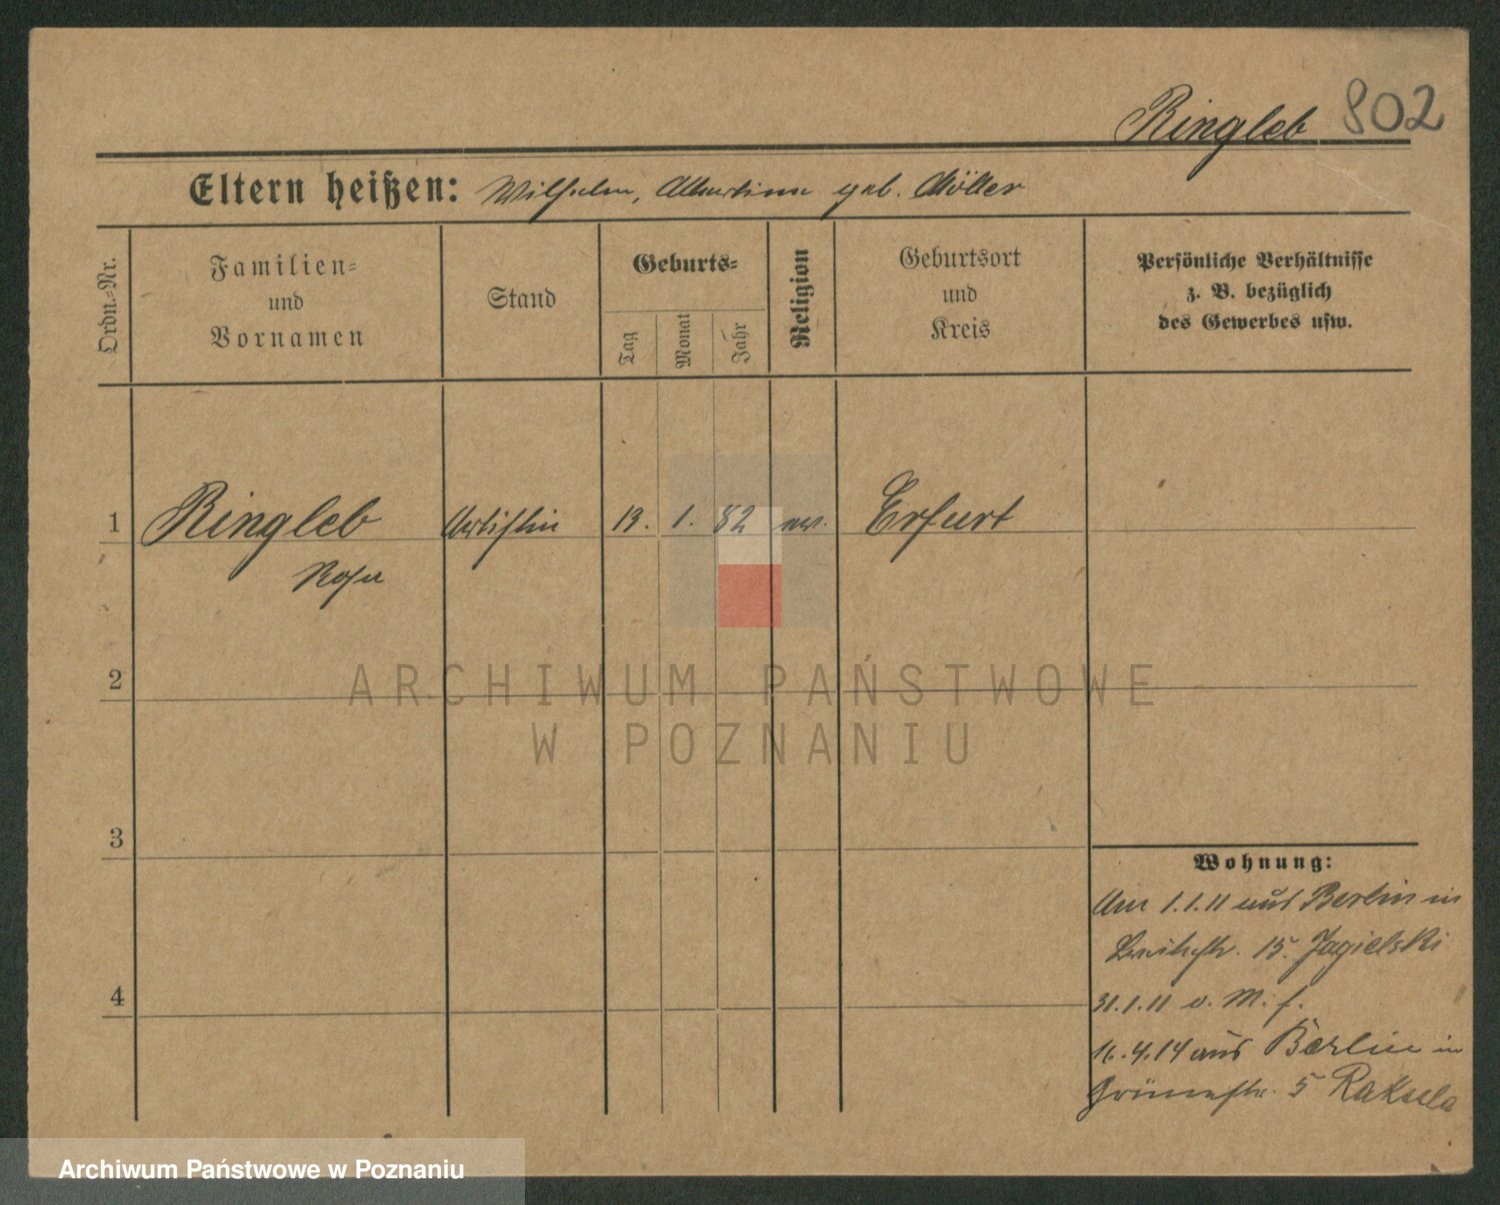 Ringleb 802
Eltern heißen: Wilhelm, Albertine geb. Möller
Ordn.-Nr.
Familien-
und
Vornamen
Stand
Geburts-
Tag
Monat
Jahr
Religion
Geburtsort
und
Kreis
Persönliche Verhältnisse
z. B. bezüglich
des Gewerbes usw.
1 Ringleb Artistin 13. 1. 82 ev. Erfurt
Rosa
2
ARCHIWUM PAŃSTWOWE
W POZNANIU
3
Wohnung:
1.1.11 aus Berlin in
Breitestr. 15. Jagielski
4
31.1.11 v. M. f.
16.4.14 aus Berlin in
Grünestr. 5 Rakula
Archiwum Państwowe w Poznaniu